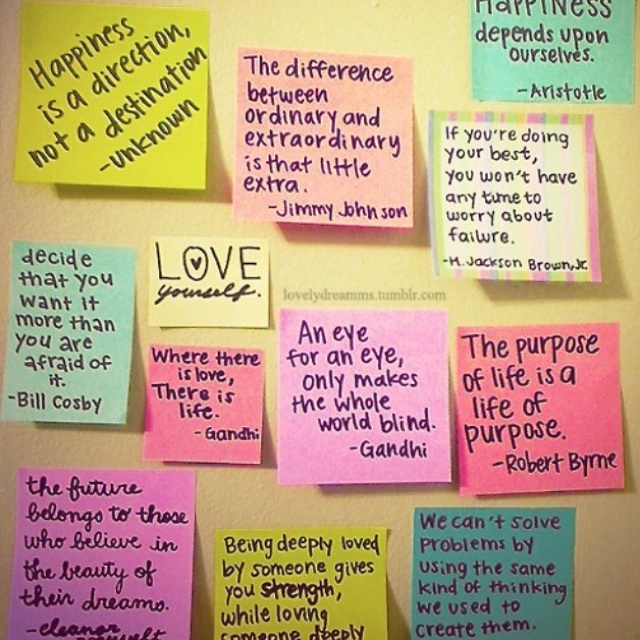 Happiness
is a direction,
not a destination
-unknown
The difference
between
ordinary and
extraordinary
is that little
extra.
-Jimmy Johnson
HAPPINESS
depends upon
ourselves.
-Aristotle
If you're doing
your best,
you won't have
any time to
worry about
failure.
-H. Jackson Brown, Jr.
decide
that you
want it
more than
you are
afraid of
it.
-Bill Cosby
LOVE
yourself.
lovelydreamms.tumblr.com
Where there
is love,
There is
life.
-Gandhi
An eye
for an eye,
only makes
the whole
world blind.
-Gandhi
The purpose
of life is a
life of
purpose.
-Robert Byrne
the future
belongs to those
who believe in
the beauty of
their dreams.
-eleanor
roosevelt
Being deeply loved
by someone gives
you strength,
while loving
someone deeply
We can't solve
problems by
using the same
kind of thinking
we used to
create them.